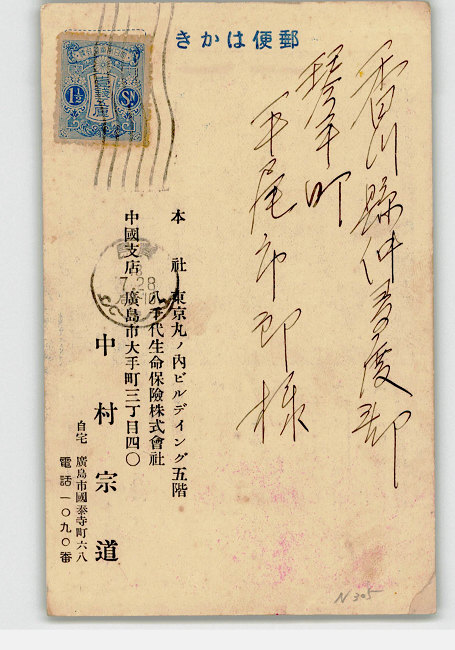 郵便はかき
香川縣仲多度郡
琴平町
平尾市郎様
本社 東京丸ノ内ビルデイング五階
八千代生命保險株式會社
中國支店 廣島市大手町三丁目四〇
中村宗道
自宅 廣島市國泰寺町六八
電話一〇九〇番
1½ Sn.
7.28
N 305